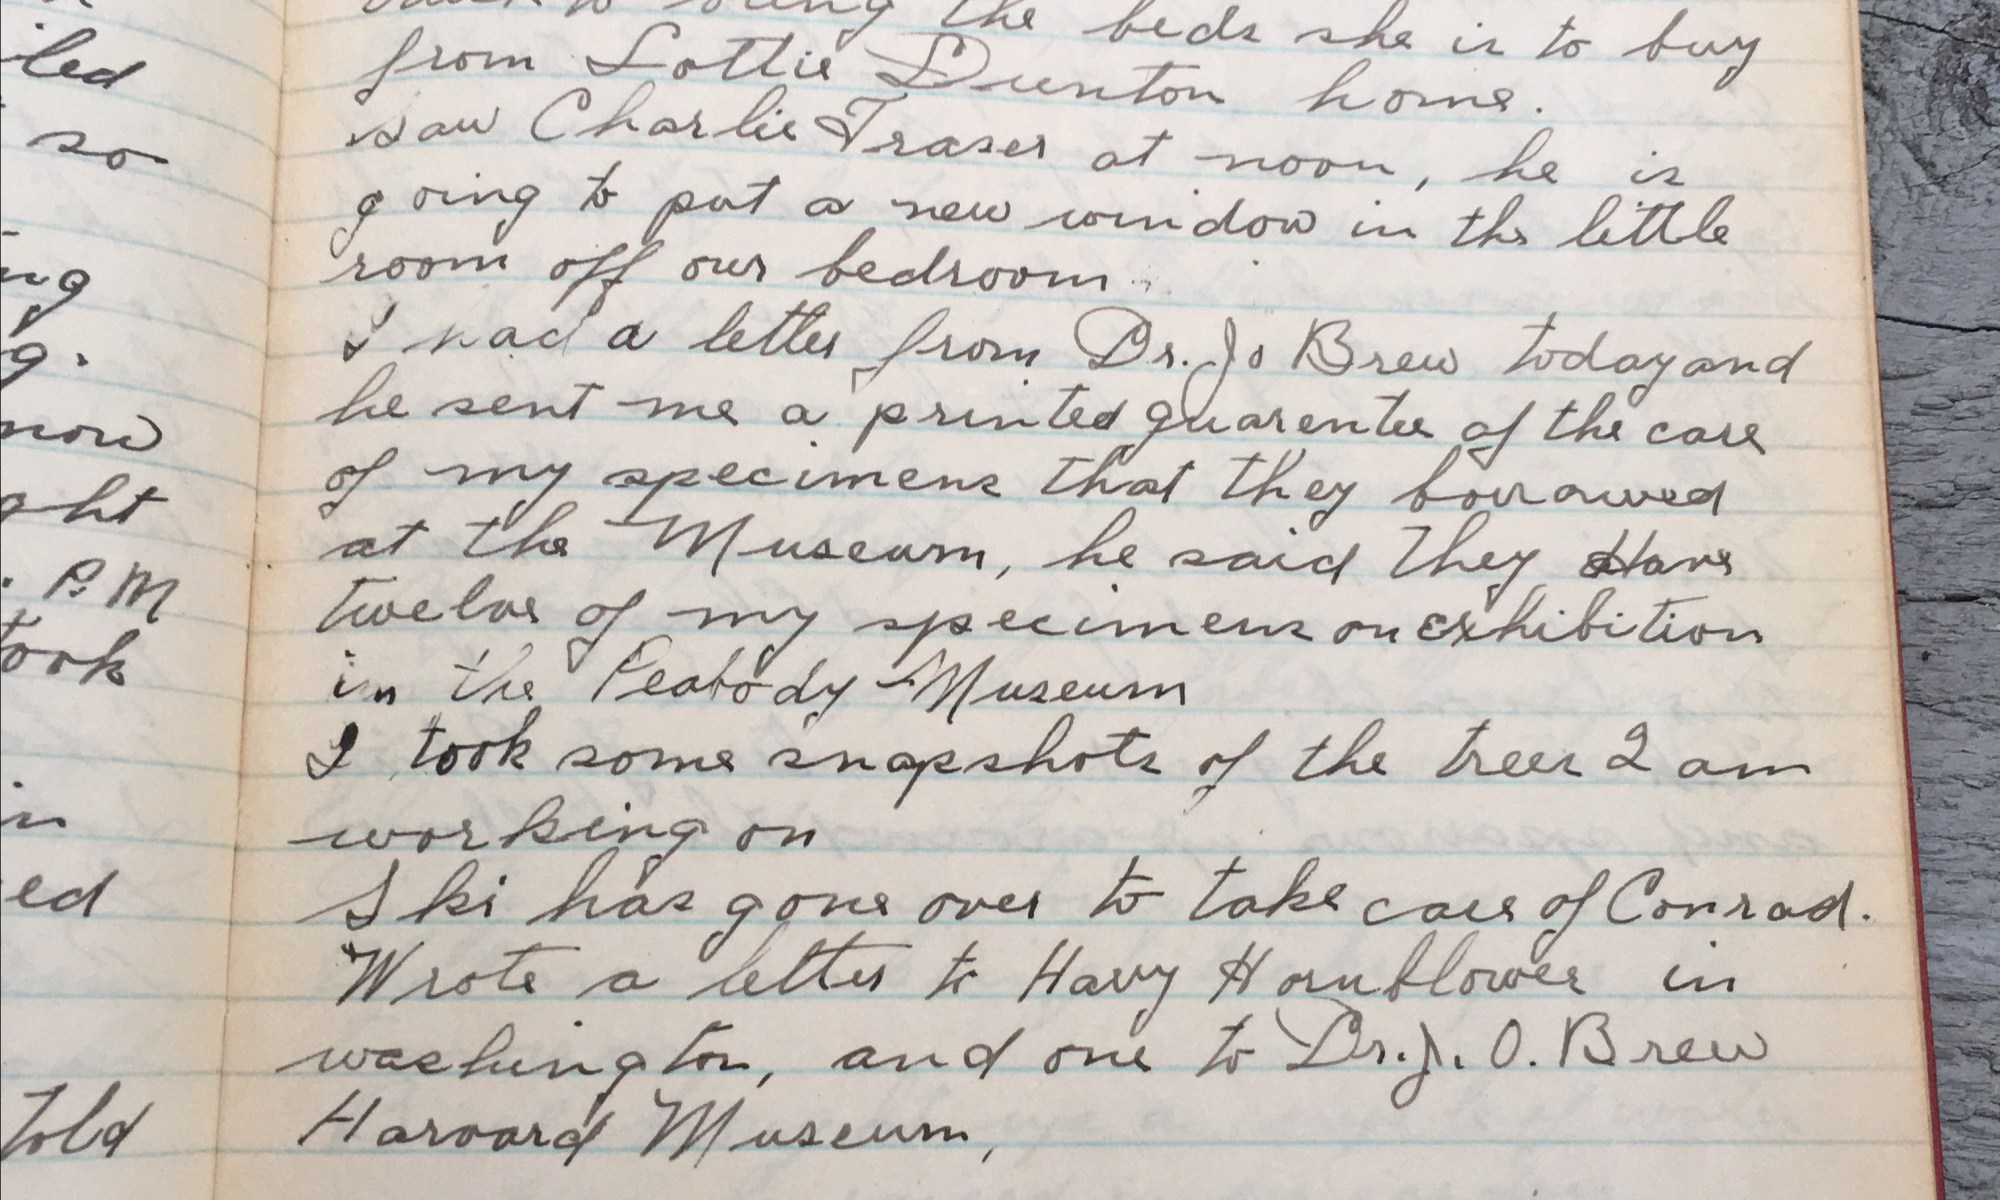 to bring the beds she is to buy
from Lottie Dunton home.
saw Charlie Fraser at noon, he is
going to put a new window in the little
room off our bedroom
I had a letter from Dr. Jo Brew today and
he sent me a printed guarentee of the care
of my specimens that they borrowed
at the Museum, he said they Have
twelve of my specimens on exhibition
in the Peabody Museum
I took some snapshots of the trees I am
working on
Ski has gone over to take care of Conrad.
Wrote a letter to Harry Hornblower in
washington, and one to Dr. J. O. Brew
Harvard Museum,
led
so
ng
g.
now
ght
. P.M
took
in
ed
told